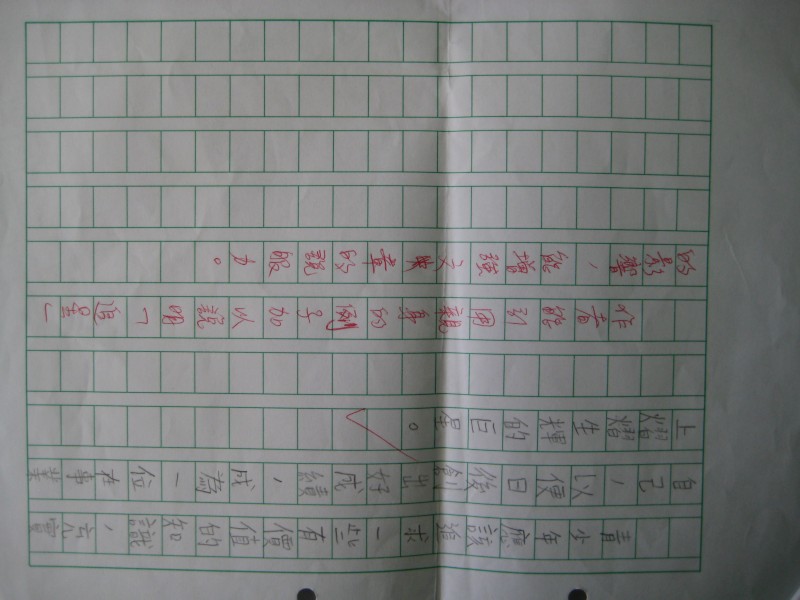 青少年應該追求一些有價值的知識，充實
自己，以便日後創出好成績，成為一位在事業
上熠熠生輝的巨星。
作者能引用親身的例子加以說明「追星」
的影響，能增強文章的說服力。